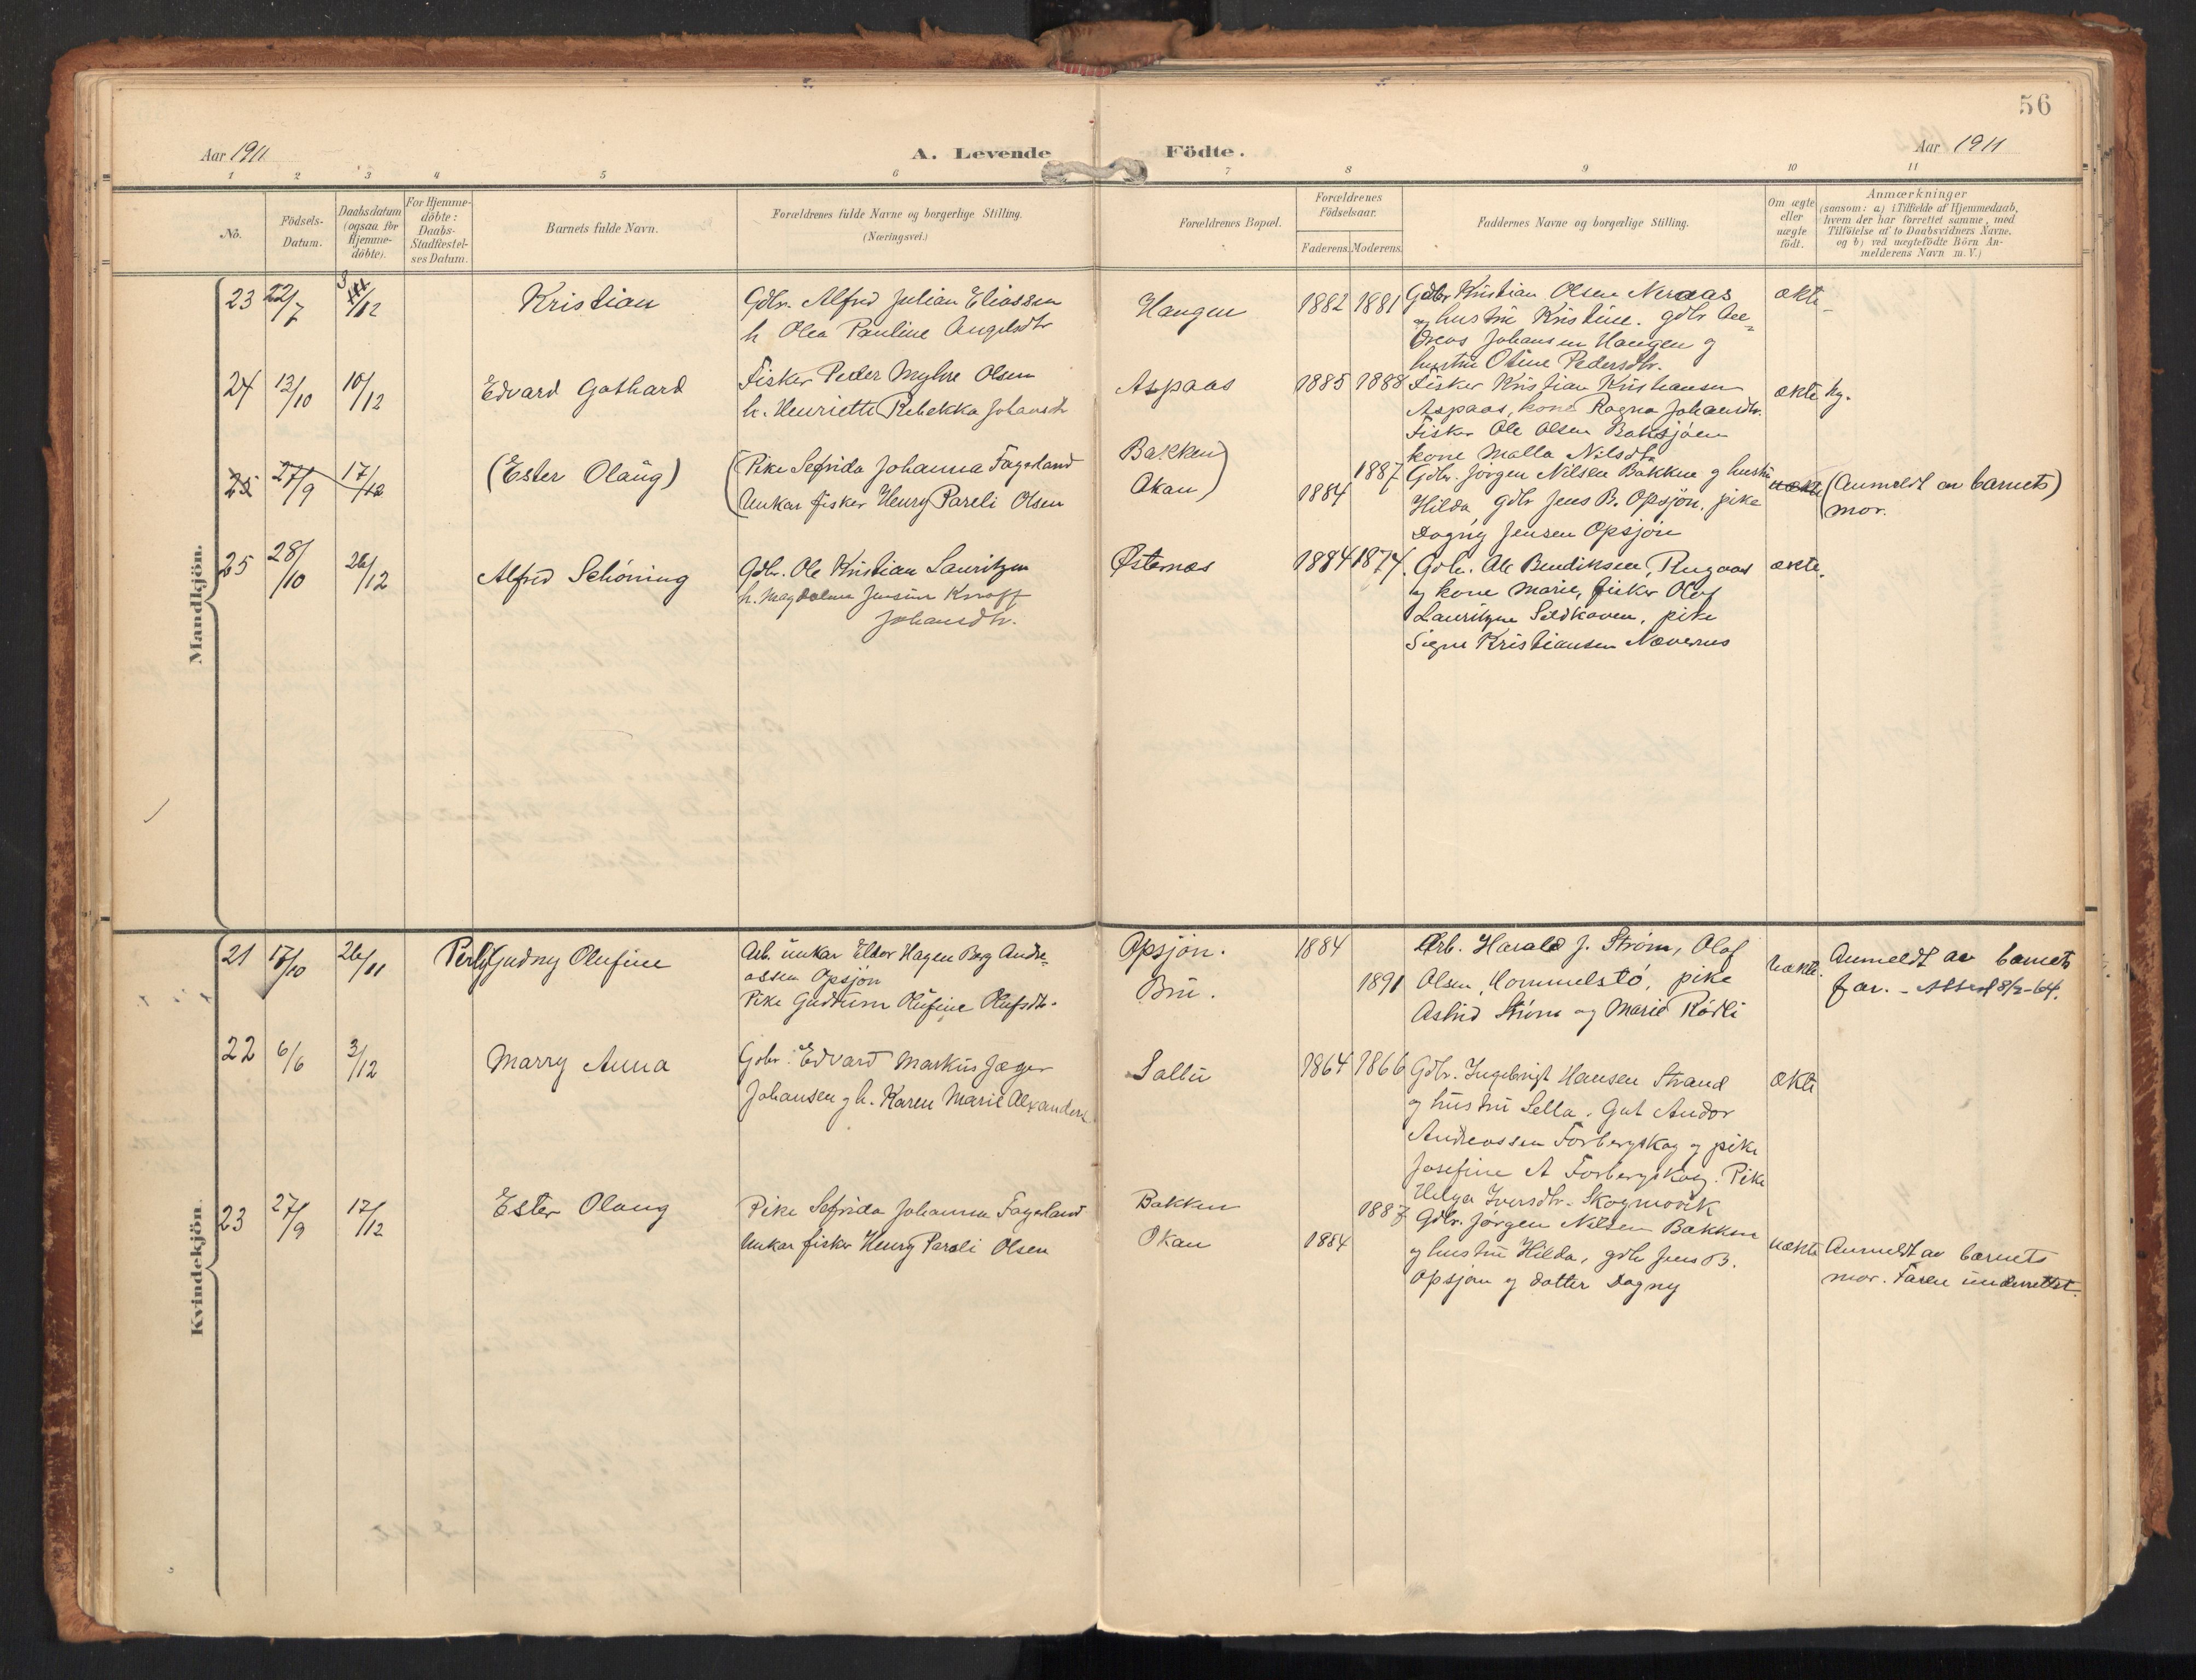 56
Aar 1911
A. Levende Födte.
Aar 1911
1 2 3 4 5 6 7 8 9 10 11
No.
Födsels-Datum.
Daabsdatum (ogsaa for Hjemme-döbte).
For Hjemme-döbte: Daabs-Stadfæstel-ses Datum.
Barnets fulde Navn.
Forældrenes fulde Navne og borgerlige Stilling.
(Næringsvei.)
Forældrenes Bopæl.
Forældrenes Födselsaar.
Faderens. Moderens.
Faddernes Navne og borgerlige Stilling.
Om ægte eller uægte födt.
Anmærkninger
(saasom: a) i Tilfælde af Hjemmedaab,
hvem der har forrettet samme, med
Tilföielse af to Daabsvidners Navne,
og b) ved uægtefödte Börn An-
melderens Navn m. V.)
Mandkjön.
23 22/7 3/12 Kristian
Gdbr. Alfred Julian Eliassen
h. Olea Pauline Angelsdtr
Haugen
1882 1881
Gdbr Kristian Olsen Neraas
og hustru Kristine. gdbr An-
dreas Johansen Haugen og
hustru Otine Pedersdtr.
ekte
24 13/10 10/12 Edvard Gothard
Fisker Peder Myhre Olsen
h. Henriette Rebekka Johansdtr
Aspaas
1885 1888
Fisker Kristian Kristiansen
Aspaas, kone Ragna Johansdtr.
Fisker Ole Olsen Baksjøen
kone Malla Nilsdtr
ekte
25 27/9 17/12 (Ester Olaug)
(Pike Sefrida Johanna Fagerland
Unkar fisker Henry Pareli Olsen
Bakken
Okan)
1887
1884
Gdbr. Jørgen Nilsen Bakken g hustru
Hilda gdbr Jens B. Opsjøn, pike
Dagny Jensen Opsjøn
uekte
(Anmeldt av barnets)
mor.
25 28/10 26/12 Alfred Schöning
Gdbr. Ole Kristian Lauritzen
h. Magdalena Jensine Knoff
Johansdtr.
Østernes
1884 1874
Gdbr. Ole Bendiksen,
og kone Marie, fisker Olaf
Lauritzen Sildhaven, pike
Signe Kristiansen Nævernes
ekte.
Kvindekjön.
21 17/10 26/11 Perly Gudny Olufine
Arb. unkar Eldor Hagen Berg Andre-
assen Opsjøn
Pike Gudrun Olufine Olufsdtr.
Opsjøn.
Bru.
1884
1891
Arb. Harald J. Strøm, Olaf
Olsen, Hommelstø, pike
Astrid Strøm og Marie Rødli
Uekte.
Anmeldt av barnets
far. - Attest 8/2-64.
22 6/6 3/12 Marry Anna
Gdbr. Edvard Markus Jæger
Johansen g h. Karen Marie Alexandersen
Salbu
1864 1866
Gdbr. Ingebrigt Hansen Strand
og hustru Sella. Gut Andor
Andreassen Forbergskog g pike
Josefine A Forbergskog. Pike
Helga Iversdtr. Skogmovik
ekte
23 27/9 17/12 Ester Olaug
Pike Sefrida Johanna Fagerland
Unkar fisker Henry Pareli Olsen
Bakken
Okan
1887
1884
Gdbr. Jørgen Nilsen Bakken
og hustru Hilda, gdbr Jens B.
Opsjøn og datter Dagny
uekte
Anmeldt av barnets
mor. Faren underrettet.